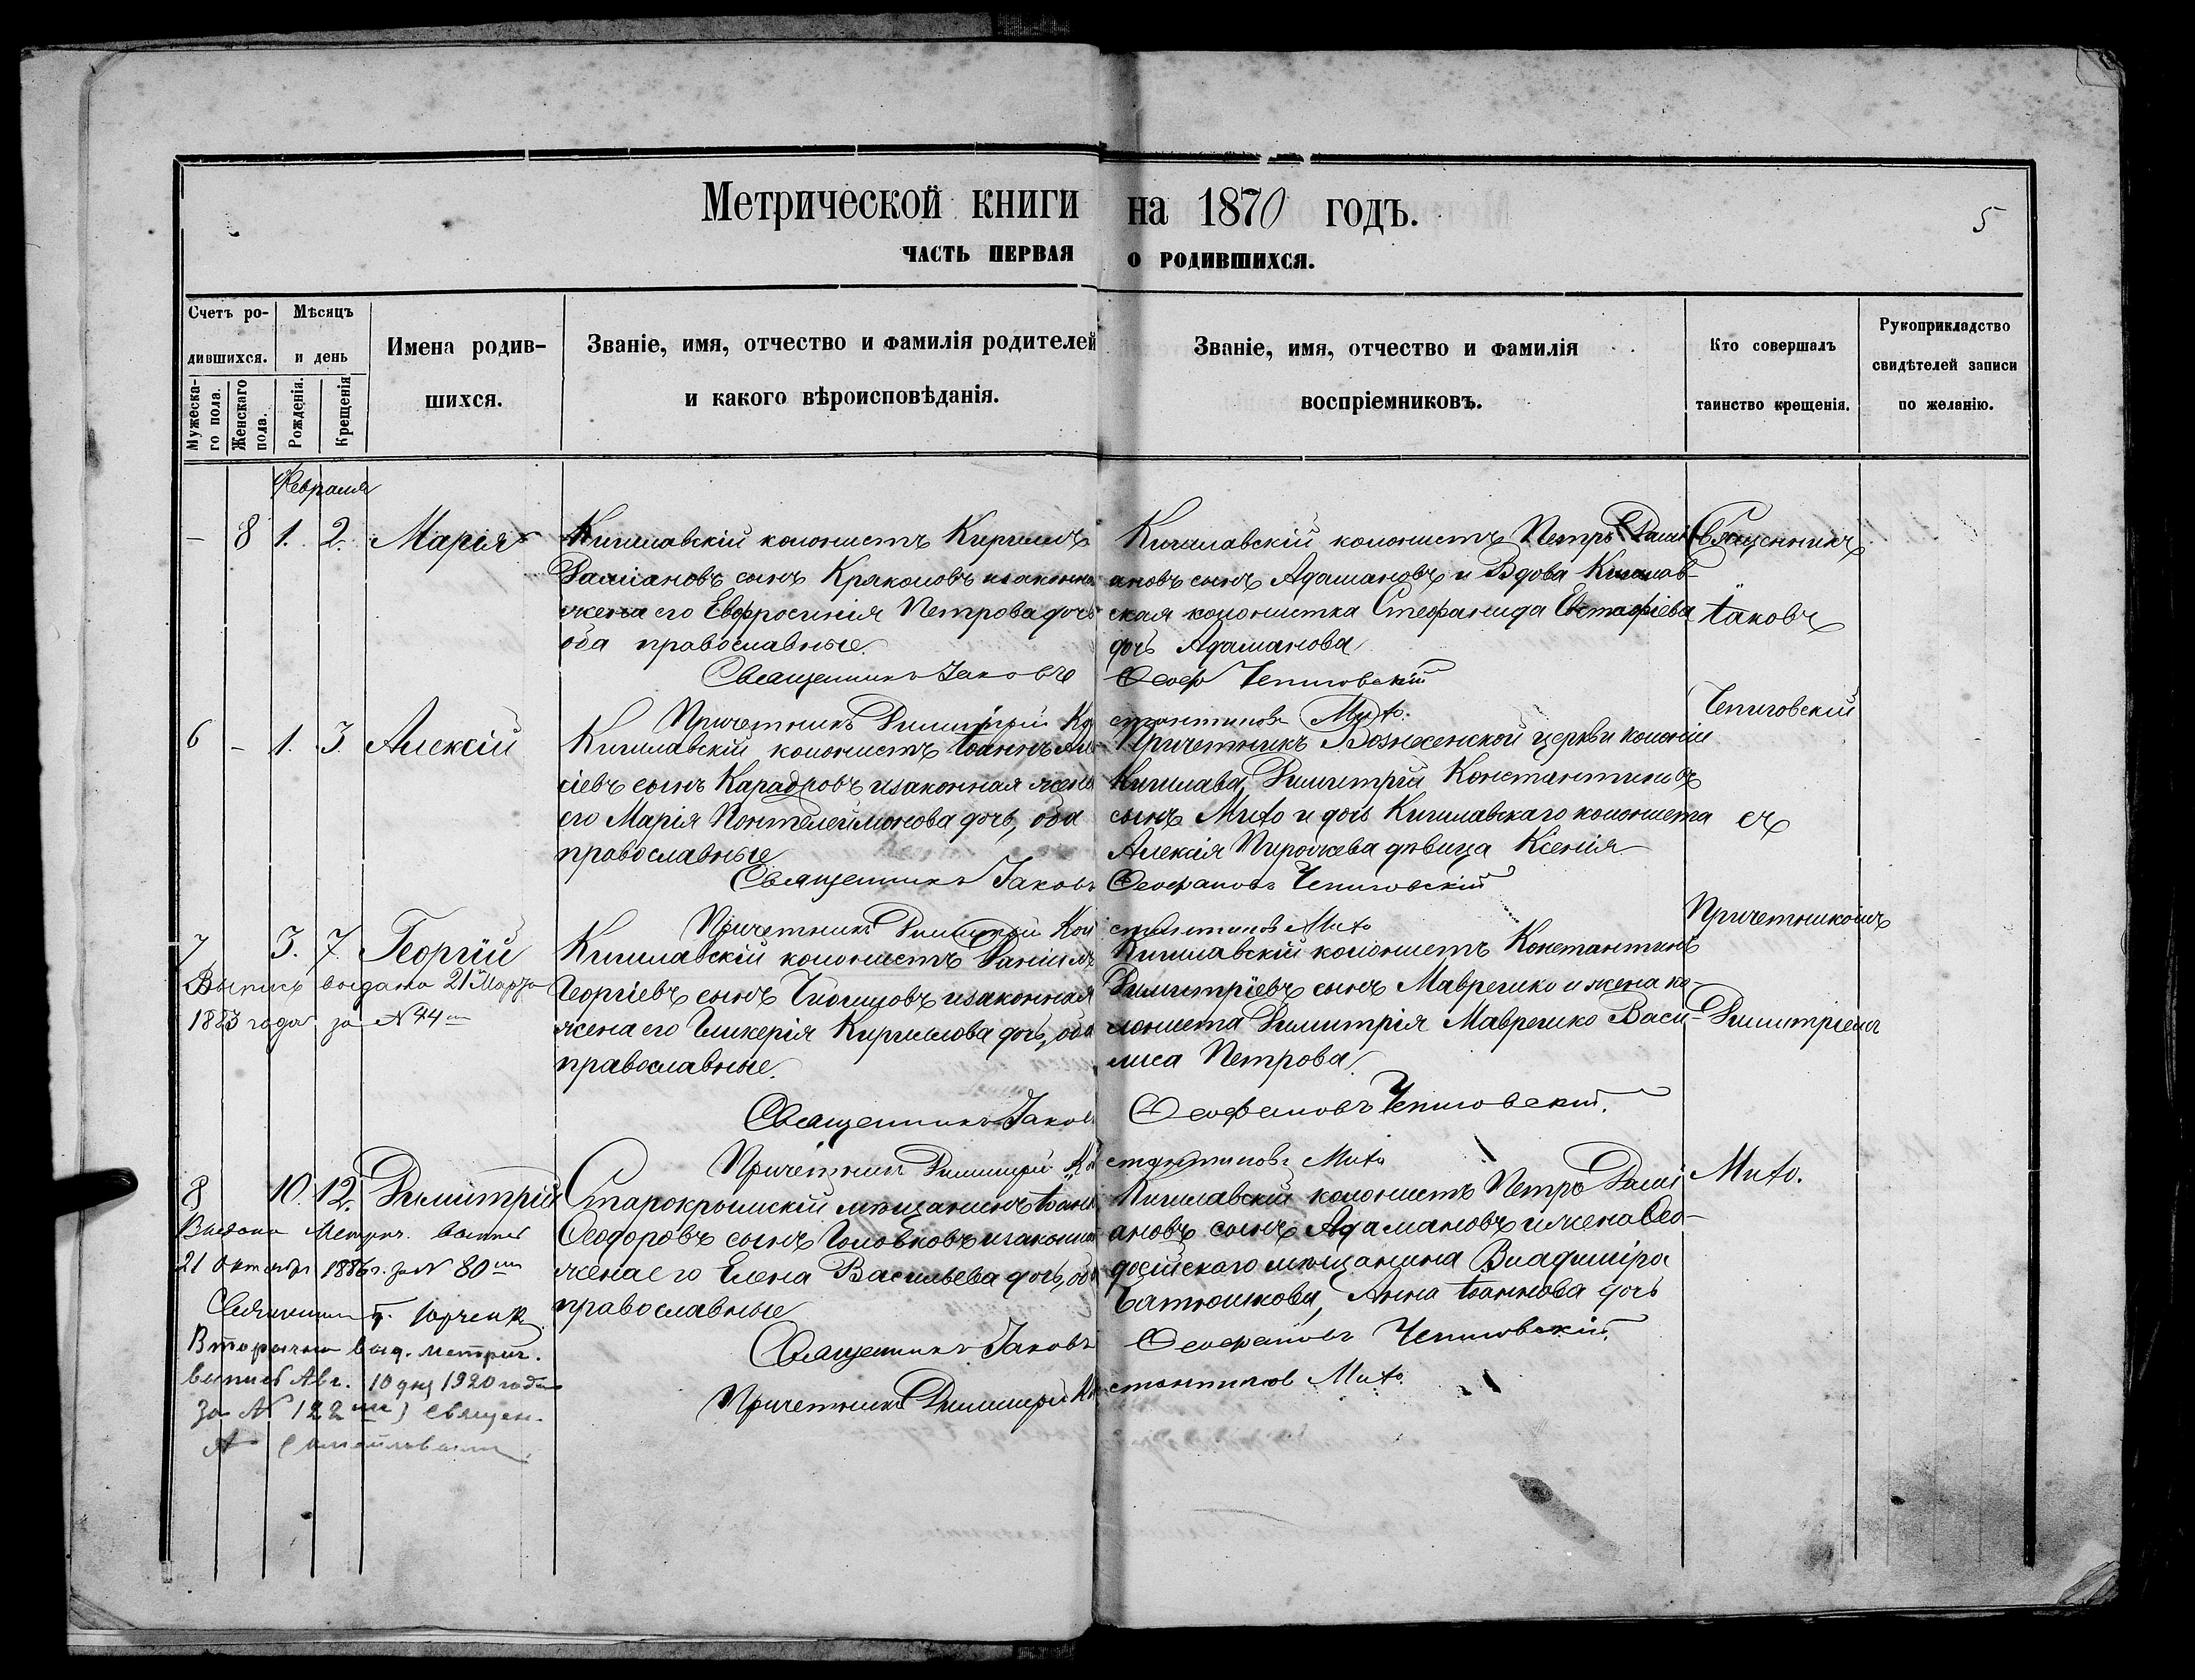 Метрической книги на 1870 годъ.
5
ЧАСТЬ ПЕРВАЯ О РОДИВШИХСЯ.
Счетъ ро-
дившихся.
Мужеска-
го пола.
Женскаго
пола.
Мѣсяцъ
и день
Рожденія.
Крещенія
Имена родив-
шихся.
Званіе, имя, отчество и фамилія родителей
и какого вѣроисповѣданія.
Званіе, имя, отчество и фамилія
воспріемниковъ.
Кто совершалъ
таинство крещенія.
Рукоприкладство
свидѣтелей записи
по желанію.
Февраля
– 8 1. 2. Марія
Кишлавскій колонистъ Кириллъ
Даміановъ сынъ Кряконовъ и законная
жена его Евфросинія Петрова дочь
оба православные.
Кишлавскій колонистъ Петръ Дамі
ановъ сынъ Адамановъ и Вдова Кишлав-
ская колонистка Стефанида Евстафіева
дочь Адаманова
Священникъ
Іаковъ
Чепиговскій
съ
Причетникомъ
Димитріемъ
Мито.
Священникъ Іаковъ Ѳеоф Чепиговскій
Причетникъ Димитрій Константиновъ Мито.
6 – 1. 3. Алексій
Кишлавскій колонистъ Іоаннъ Алек
сіевъ сынъ Карадровъ и законная жена
его Марія Понтелеймонова дочь, оба
православные
Причетникъ Вознесенской церкви колоніи
Кишлава, Димитрій Константиновъ
сынъ Мито и дочь Кишлавскаго колониста
Алексія Пирожева дѣвица Ксенія
Священникъ Іаковъ Ѳеофановъ Чепиговскій
Причетникъ Димитрій Константиновъ Мито
7 3. 7. Георгій
Выпись выдана 21 Марта
1883 года за № 44
Кишлавскій колонистъ Даніилъ
Георгіевъ сынъ и законная
жена его Гликерія Кириллова дочь, оба
православные.
Кишлавскій колонистъ Константинъ
Димитріевъ сынъ Маврешко и жена ко-
лониста Димитрія Маврешко Васи-
лиса Петрова
Священникъ Іаковъ Ѳеофановъ Чепиговскій.
Причетникъ Димитрій Константиновъ Мито
8 10. 12. Димитрій
Выдана Метрич. выпись
21 октября 1886 г. за № 80
Священникъ Юрченко
Вторично выд. метрич.
выпись Авг. 10 дня 1920 года
за № 122 Священ.
Старокрымскій мѣщанинъ Іоаннъ
Ѳеодоровъ сынъ Головковъ и законная
жена его Елена Васильева дочь, оба
православные
Кишлавскій колонистъ Петръ Дамі
ановъ сынъ Адамановъ и жена Ѳео-
досійскаго мѣщанина Владиміра
Батюшкова, Анна Іоаннова дочь
Священникъ Іаковъ Ѳеофановъ Чепиговскій.
Причетникъ Димитрій Константиновъ Мито.